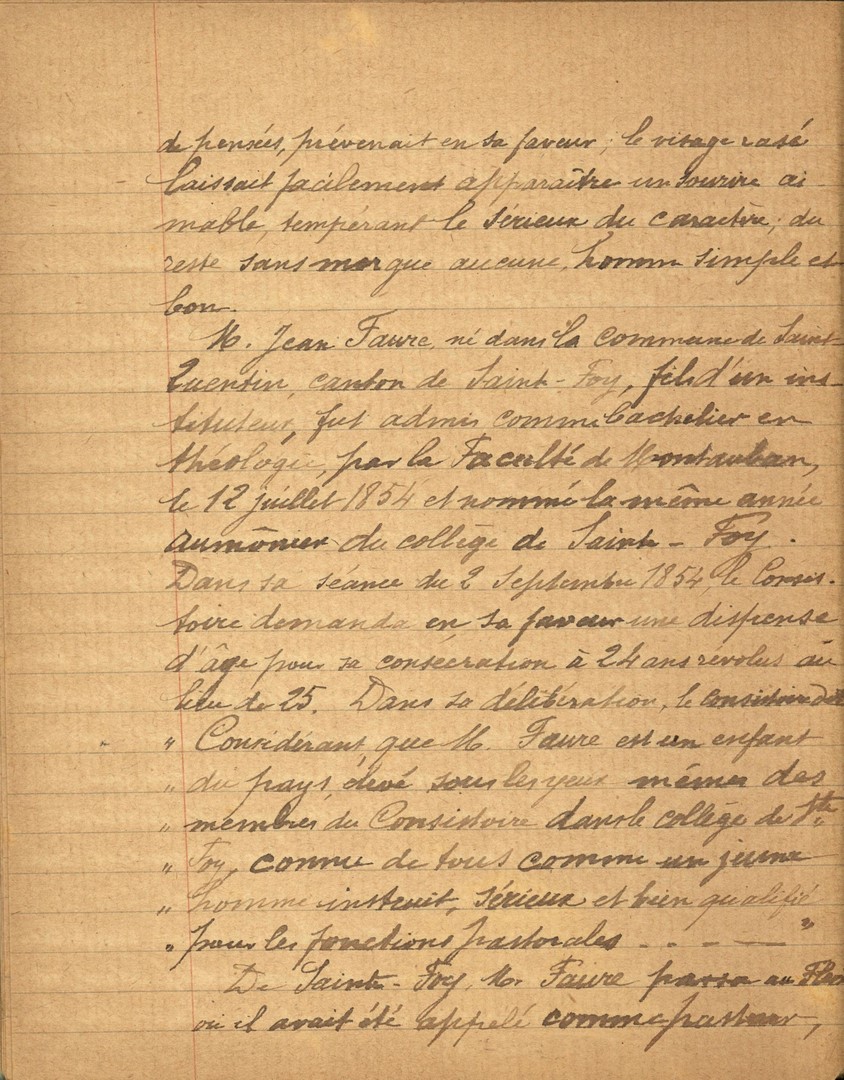 de pensées, prévenait en sa faveur ; le visage rasé
laissait facilement apparaître un sourire ai-
mable, tempérant le sérieux du caractère ; du
reste sans morgue aucune, homme simple et
bon.
M. Jean Faure, né dans la commune de Saint-
Quentin, canton de Saint-Foy, fils d'un ins-
tituteur, fut admis comme bachelier en
théologie, par la Faculté de Montauban,
le 12 juillet 1854 et nommé la même année
aumônier du collège de Saint-Foy.
Dans sa séance du 2 Septembre 1854, le Consis-
toire demanda en sa faveur une dispense
d'âge pour sa consécration à 24 ans révolus au
lieu de 25. Dans sa délibération, le consistoire dit
" Considérant que M. Faure est un enfant
" du pays, élevé sous les yeux mêmes des
" membres du Consistoire dans le collège de Ste
" Foy, connu de tous comme un jeune
" homme instruit, sérieux et bien qualifié
" pour les fonctions pastorales . . - - — "
De Saint-Foy, M. Faure passa au
où il avait été appelé comme pasteur,